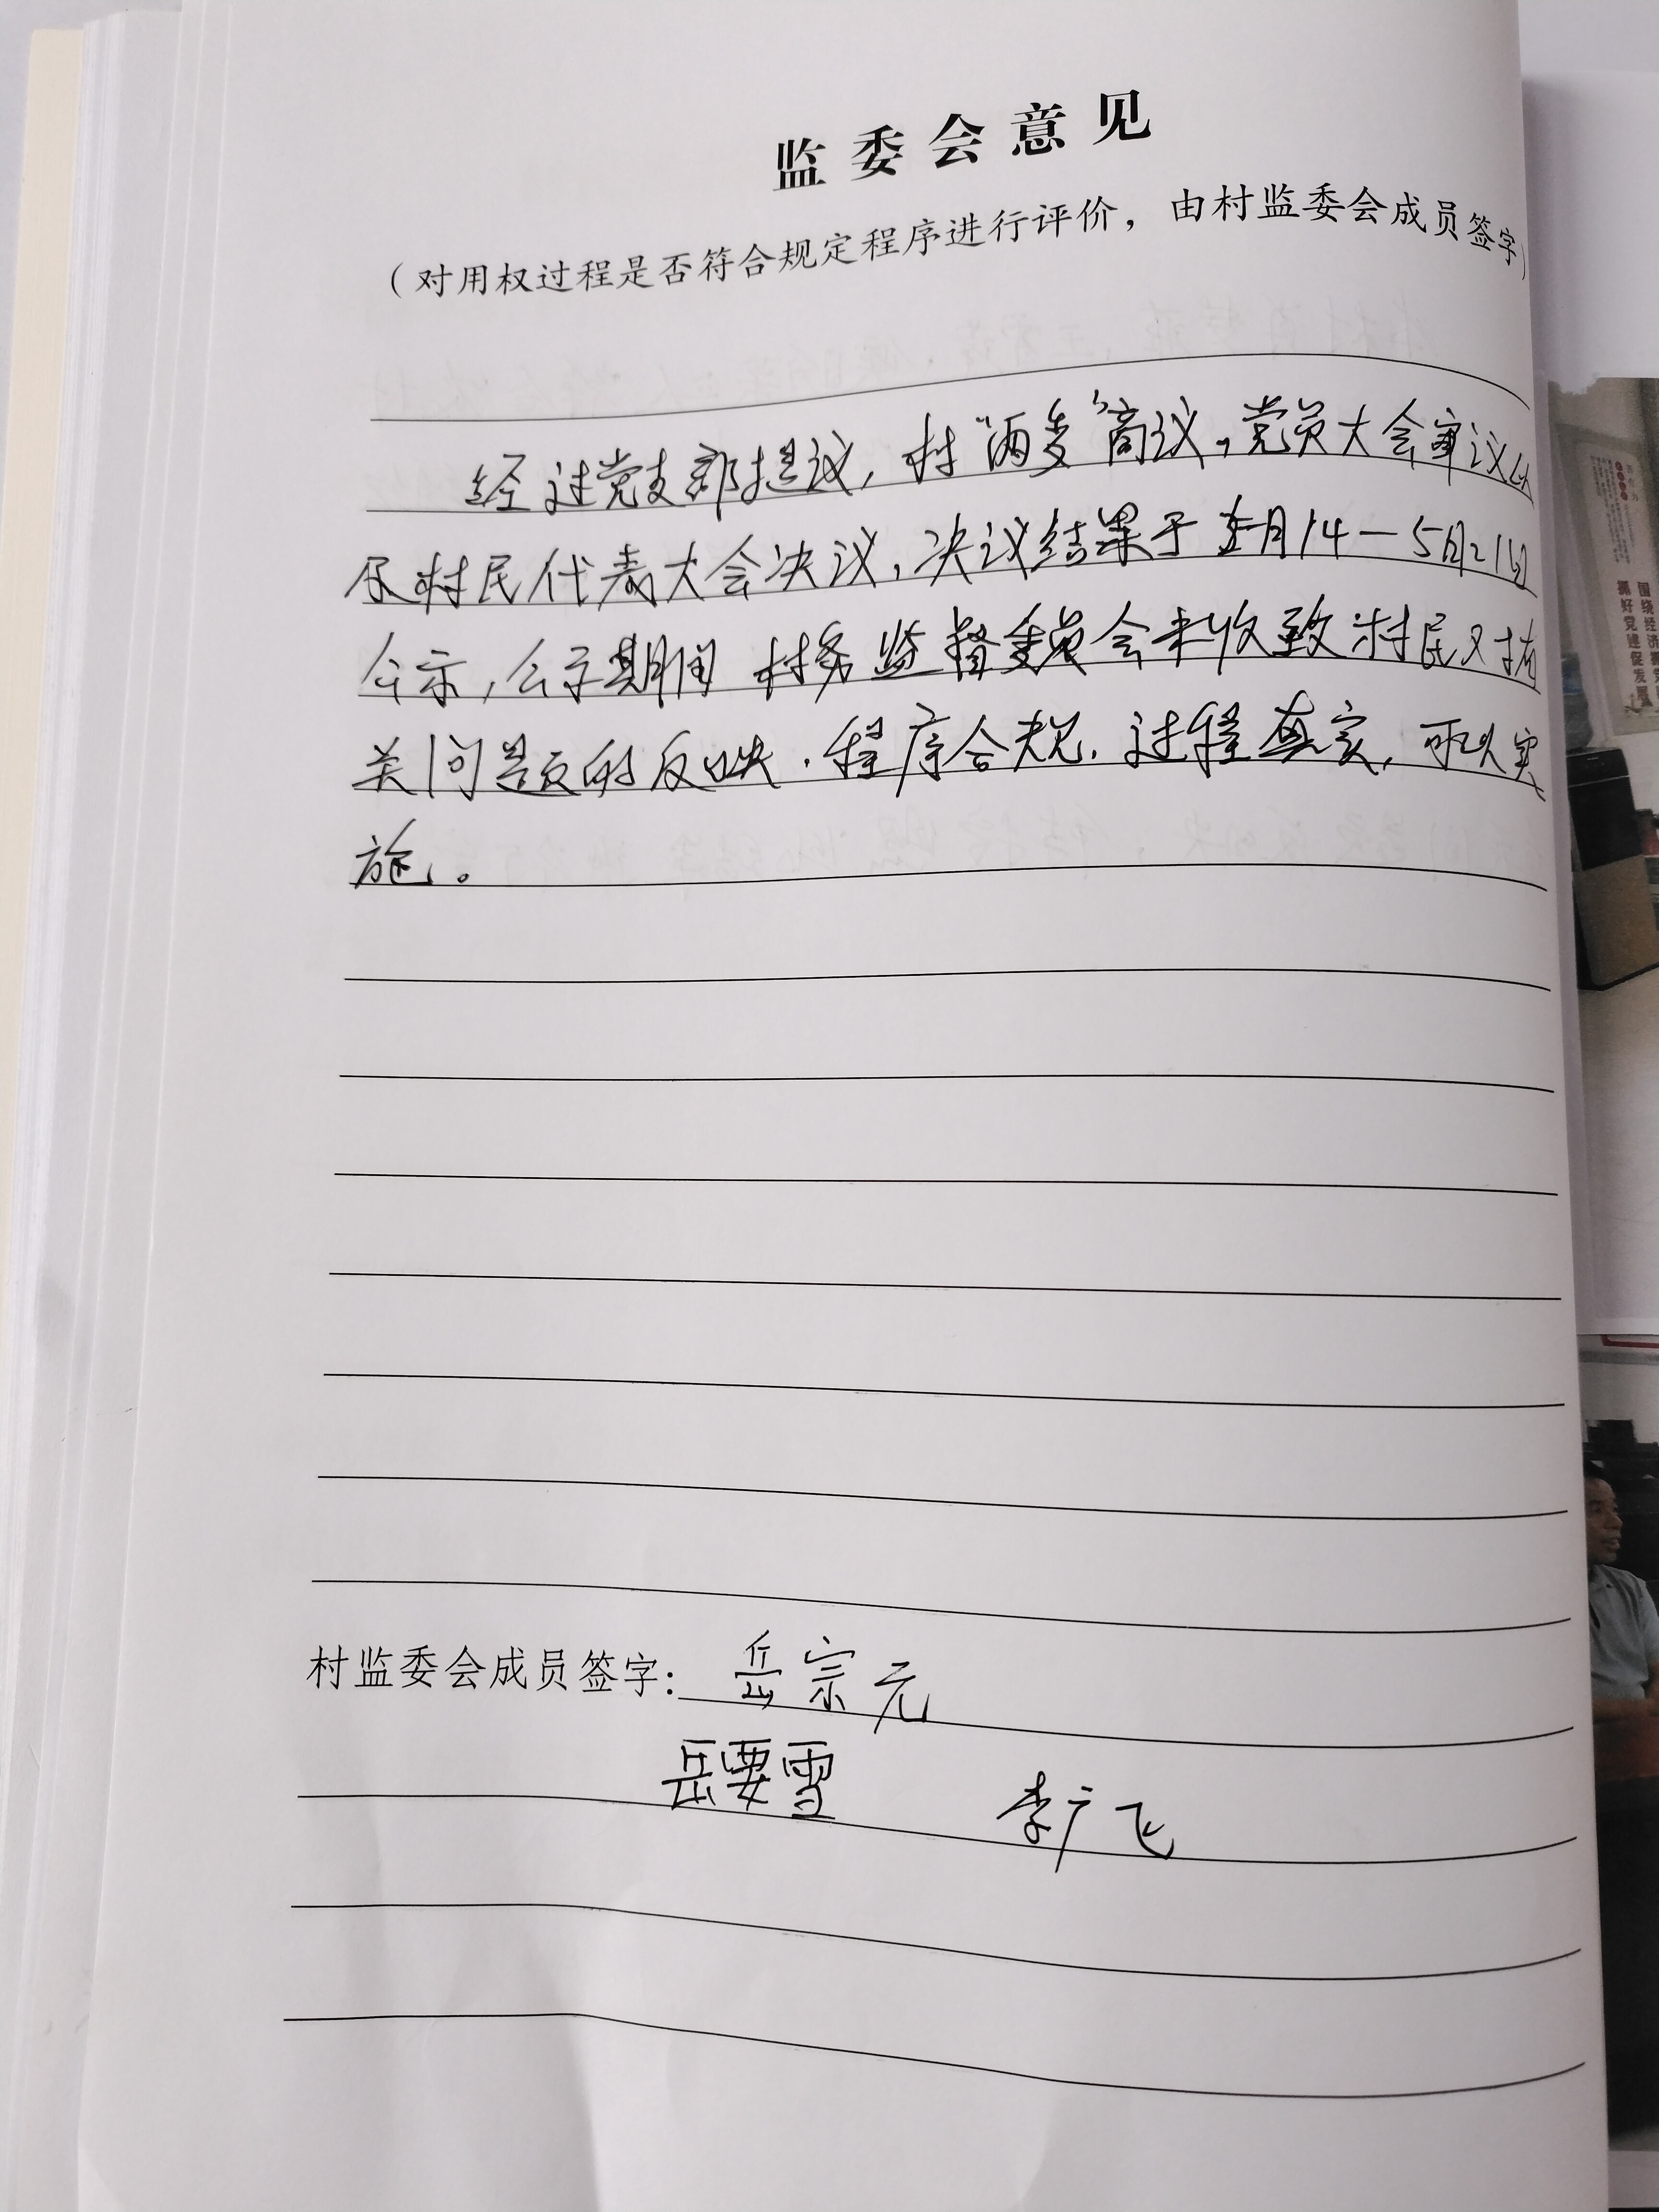 监委会意见
（对用权过程是否符合规定程序进行评价，由村监委会成员签字）
经过党支部提议，村“两委”商议，党员大会审议以
及村民代表大会决议，决议结果于5月14—5月21日
公示，公示期间村务监督委员会未收致村民对
关问题的反映，程序合规，过程真实，可以实
施。
村监委会成员签字：岳宗元
岳要雪 李广飞
围绕经济
抓好党建促发展